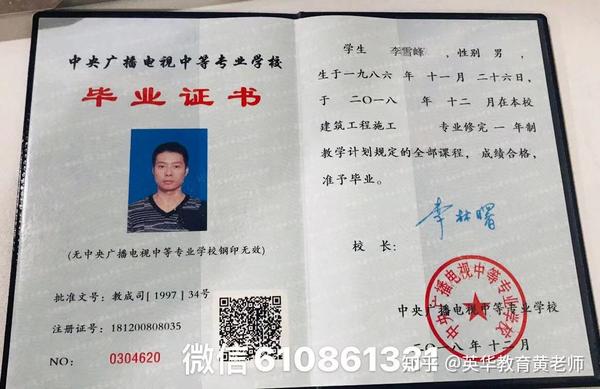 中央广播电视中等专业学校
毕业证书
(无中央广播电视中等专业学校钢印无效)
批准文号：教成司[1997]34号
注册证号：181200808035
NO： 0304620
学生 李雪峰 ，性别 男 ，
生于一九八六 年 十一月 二十六日，
于 二〇一八 年 十二 月在本校
建筑工程施工 专业修完 一 年制
教学计划规定的全部课程，成绩合格，
准予毕业。
李林曙
校 长：
中央广播电视中等专业学校
中央广播电视中等专业学校
二〇一八年十二月
微信610861321
知乎 @英华教育黄老师